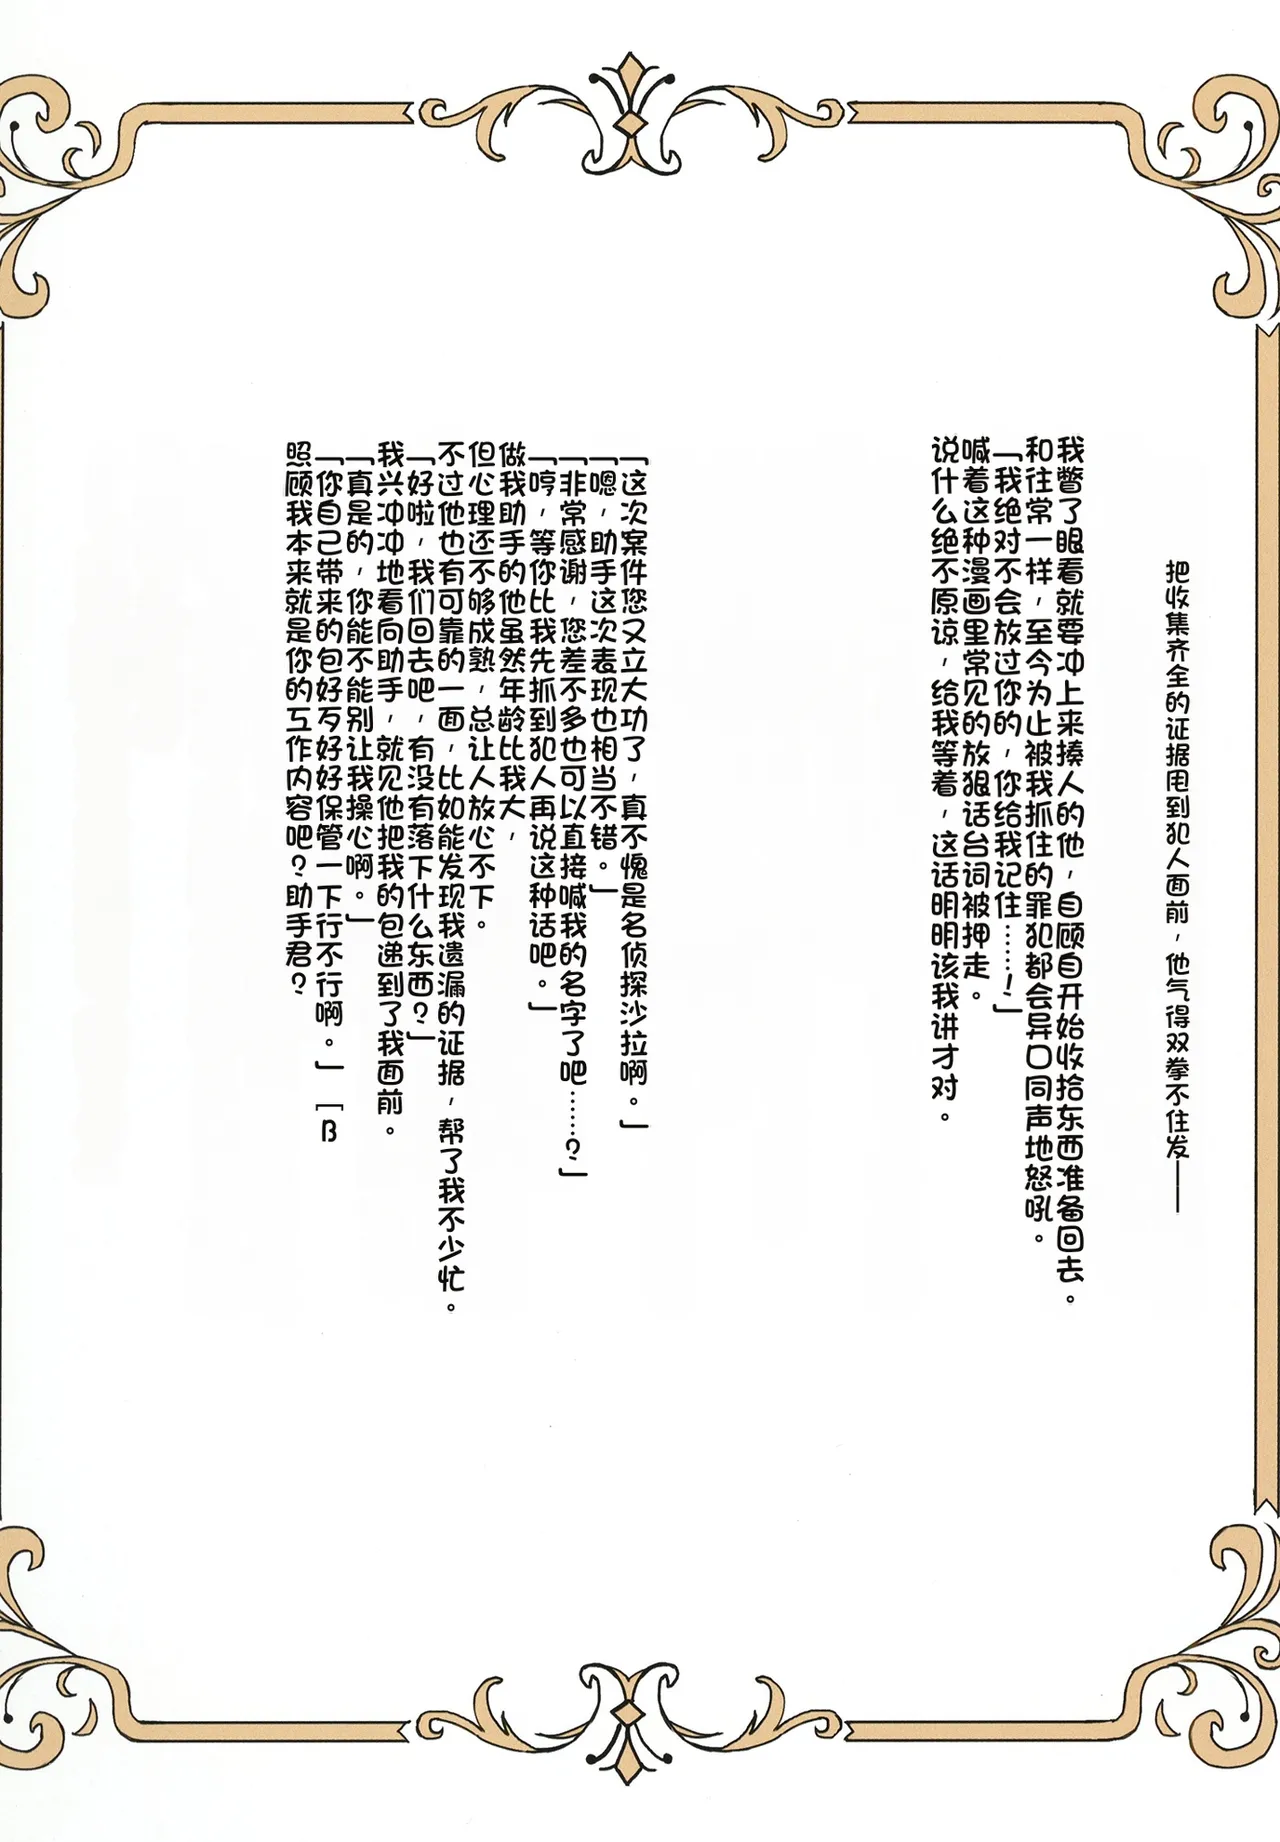 把收集齐全的证据甩到犯人面前，他气得双拳不住发——
我瞥了眼看就要冲上来揍人的他，自顾自开始收拾东西准备回去。
和往常一样，至今为止被我抓住的罪犯都会异口同声地怒吼。
「我绝对不会放过你的，你给我记住……！」
喊着这种漫画里常见的放狠话台词被押走。
说什么绝不原谅，给我等着，这话明明该我讲才对。
「这次案件您又立大功了，真不愧是名侦探沙拉啊。」
「嗯，助手这次表现也相当不错。」
「非常感谢，您差不多也可以直接喊我的名字了吧……？」
「哼，等你比我先抓到犯人再说这种话吧。」
做我助手的他虽然年龄比我大，
但心理还不够成熟，总让人放心不下。
不过他也有可靠的一面，比如能发现我遗漏的证据，帮了我不少忙。
「好啦，我们回去吧，有没有落下什么东西？」
我兴冲冲地看向助手，就见他把我的包递到了我面前。
「真是的，你能不能别让我操心啊。」
「你自己带来的包好歹好好保管一下行不行啊。」[B
照顾我本来就是你的工作内容吧？助手君？